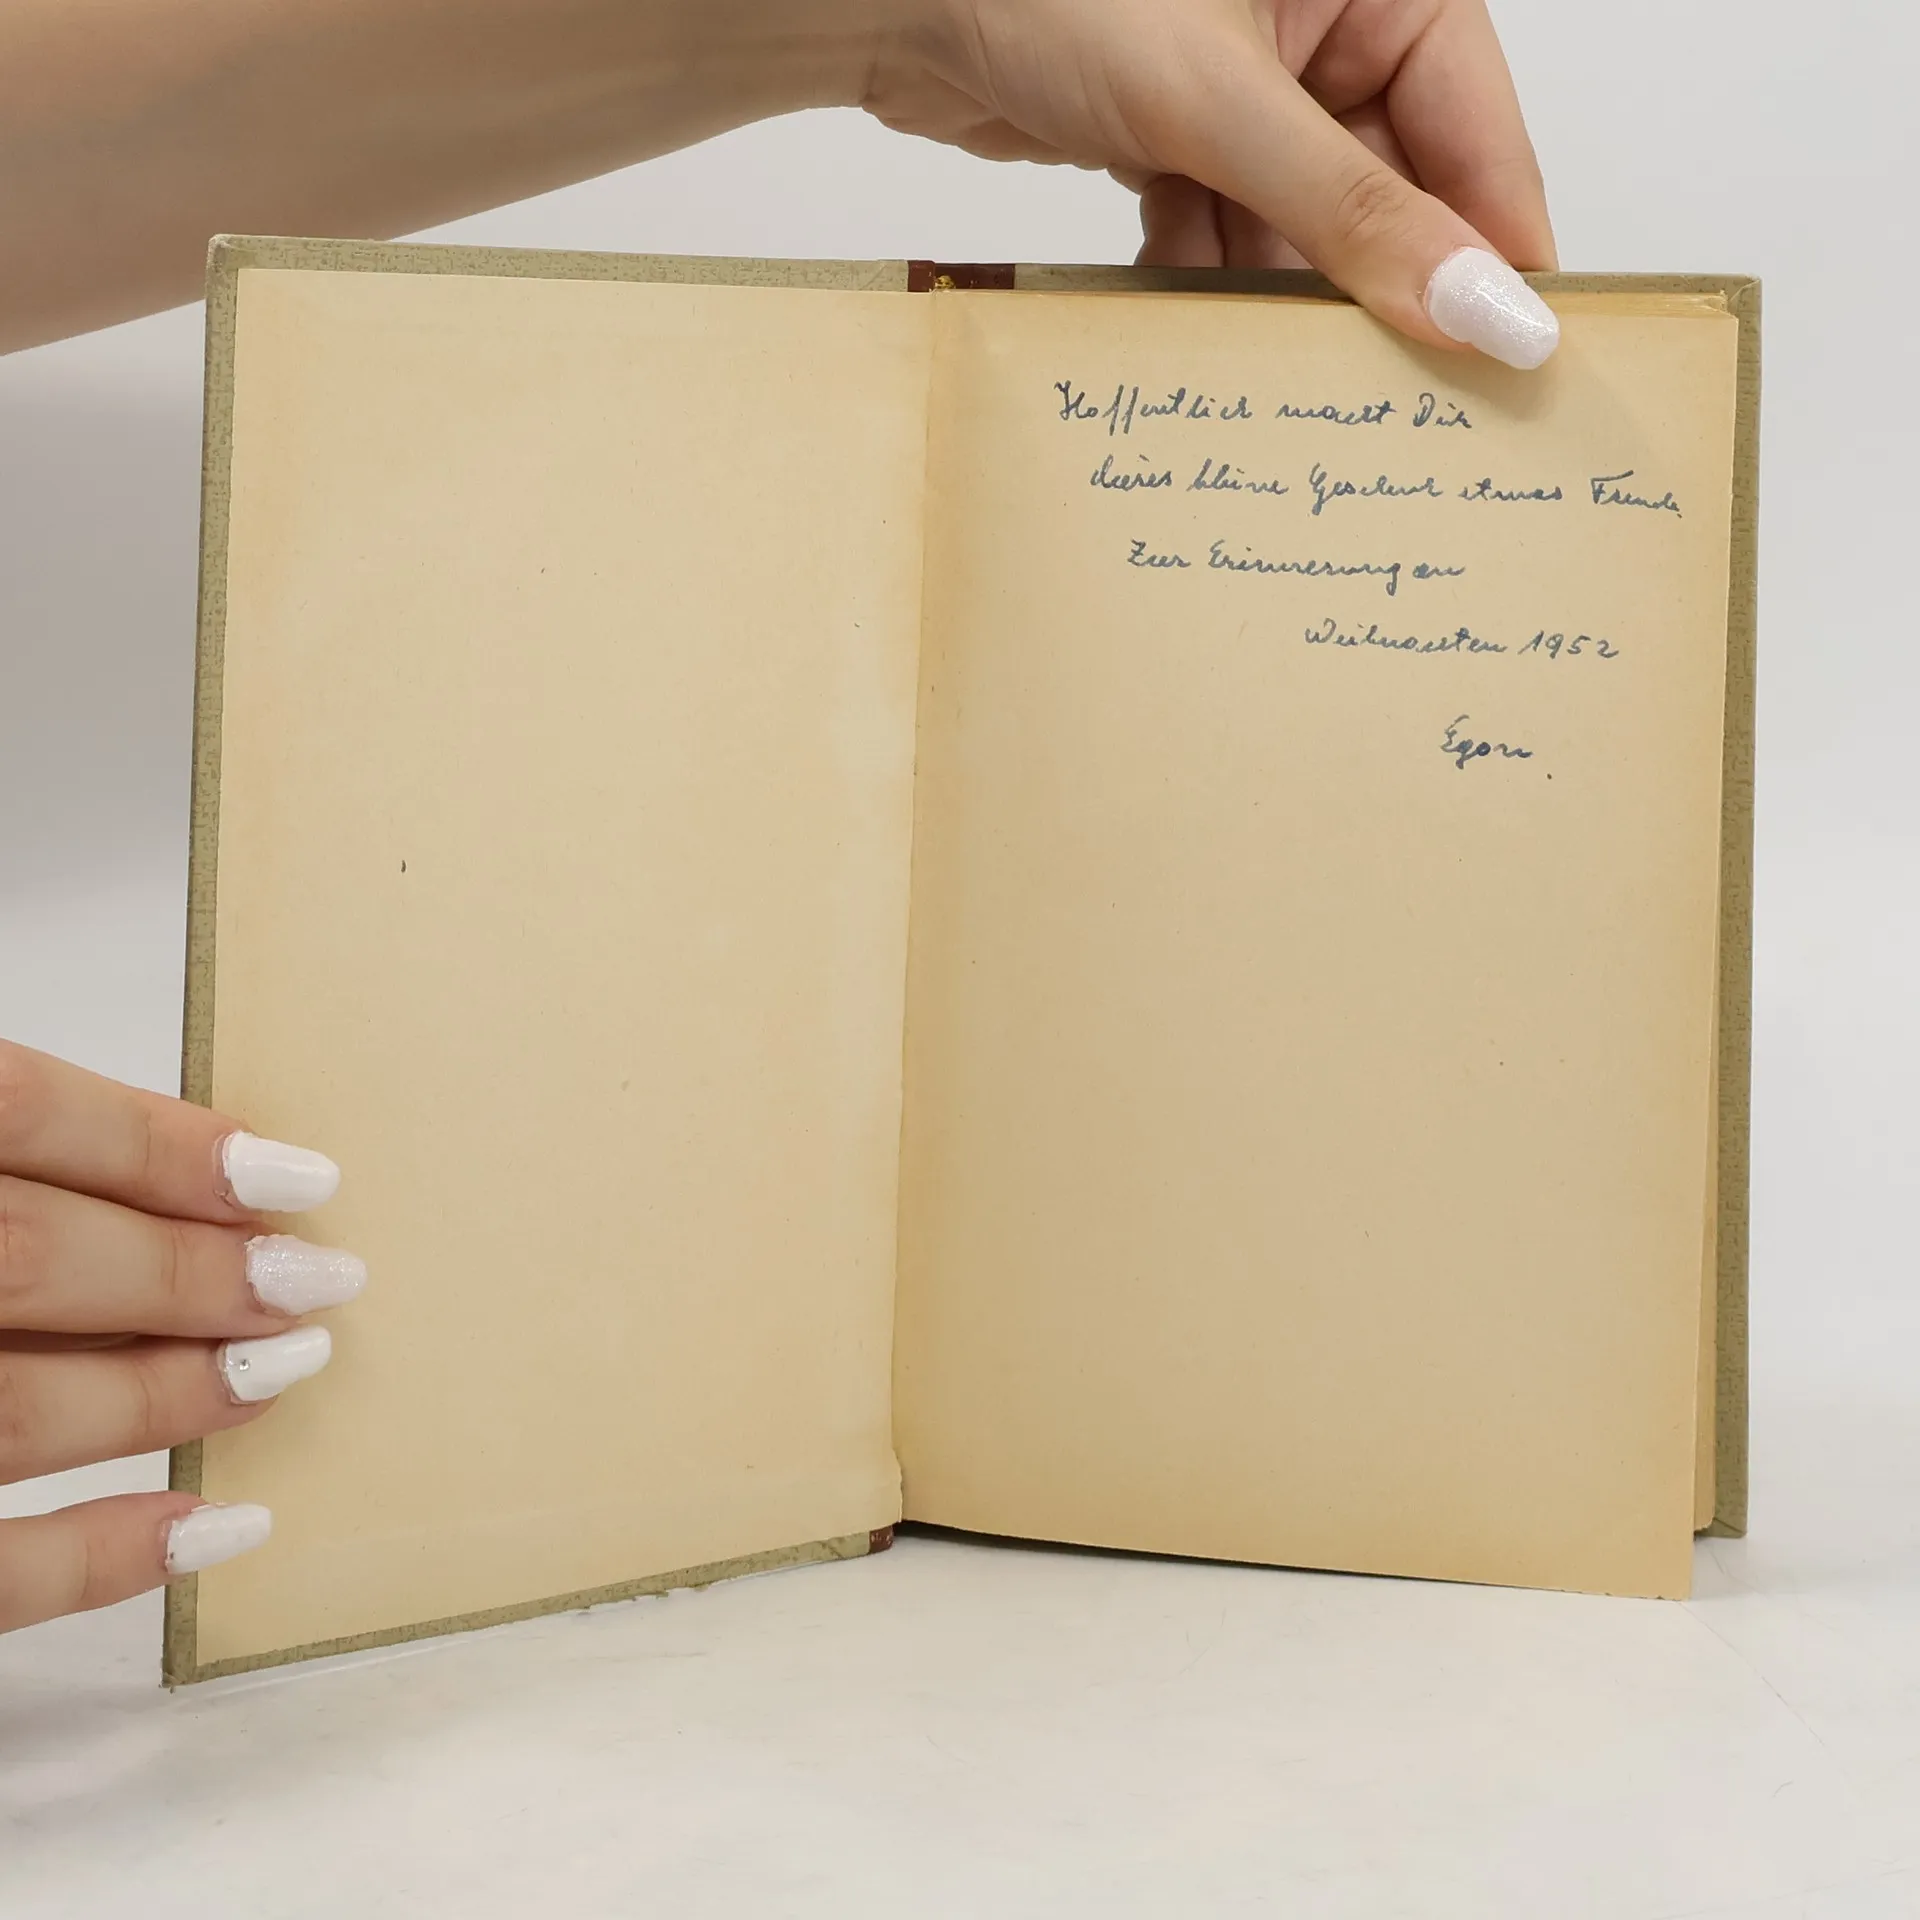 Hoffentlich macht Dir
dieses kleine Geschenk etwas Freude.
Zur Erinnerung an
Weihnachten 1952
Egon.